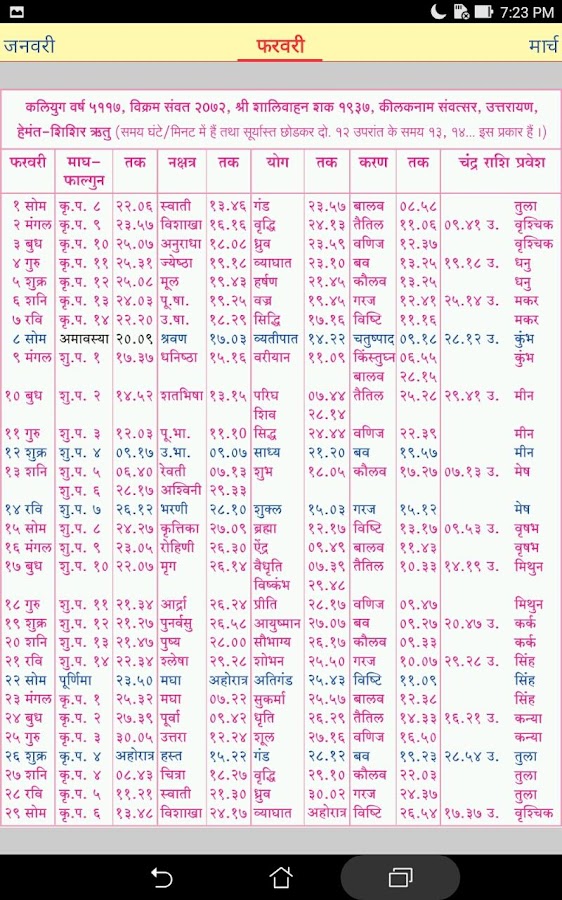 7:23 PM
जनवरी फरवरी मार्च
कलियुग वर्ष ५११७, विक्रम संवत २०७२, श्री शालिवाहन शक १९३७, कीलकनाम संवत्सर, उत्तरायण,
हेमंत-शिशिर ऋतु (समय घंटे/मिनट में हैं तथा सूर्यास्त छोडकर दो. १२ उपरांत के समय १३, १४... इस प्रकार हैं।)
फरवरी माघ- तक नक्षत्र तक योग तक करण तक चंद्र राशि प्रवेश
फाल्गुन
१ सोम कृ.प. ८ २२.०६ स्वाती १३.४६ गंड २३.५७ बालव ०८.५८ तुला
२ मंगल कृ.प. ९ २३.५७ विशाखा १६.१६ वृद्धि २४.१३ तैतिल ११.०६ ०९.४१ उ. वृश्चिक
३ बुध कृ.प. १० २५.०७ अनुराधा १८.०८ ध्रुव २३.५९ वणिज १२.३७ वृश्चिक
४ गुरु कृ.प. ११ २५.३१ ज्येष्ठा १९.१८ व्याघात २३.१० बव १३.२५ १९.१८ उ. धनु
५ शुक्र कृ.प. १२ २५.०८ मूल १९.४३ हर्षण २१.४५ कौलव १३.२५ धनु
६ शनि कृ.प. १३ २४.०३ पू.षा. १९.२५ वज्र १९.४५ गरज १२.४१ २५.१४ उ. मकर
७ रवि कृ.प. १४ २२.२० उ.षा. १८.२९ सिद्धि १७.१६ विष्टि ११.१६ मकर
८ सोम अमावस्या २०.०९ श्रवण १७.०३ व्यतीपात १४.२२ चतुष्पाद ०९.१८ २८.१२ उ. कुंभ
९ मंगल शु.प. १ १७.३७ धनिष्ठा १५.१६ वरीयान ११.०९ किंस्तुघ्न ०६.५५ कुंभ
बालव २८.१५
१० बुध शु.प. २ १४.५२ शतभिषा १३.१५ परिघ ०७.४४ तैतिल २५.२८ २९.४१ उ. मीन
शिव २८.१४
११ गुरु शु.प. ३ १२.०३ पू.भा. ११.१० सिद्ध २४.४४ वणिज २२.३९ मीन
१२ शुक्र शु.प. ४ ०९.१७ उ.भा. ०९.०७ साध्य २१.२० बव १९.५७ मीन
१३ शनि शु.प. ५ ०६.४० रेवती ०७.१३ शुभ १८.०५ कौलव १७.२७ ०७.१३ उ. मेष
शु.प. ६ २८.१७ अश्विनी २९.३३
१४ रवि शु.प. ७ २६.१२ भरणी २८.१० शुक्ल १५.०३ गरज १५.१२ मेष
१५ सोम शु.प. ८ २४.२७ कृत्तिका २७.०९ ब्रह्मा १२.१७ विष्टि १३.१७ ०९.५३ उ. वृषभ
१६ मंगल शु.प. ९ २३.०५ रोहिणी २६.३० ऐंद्र ०९.४९ बालव ११.४३ वृषभ
१७ बुध शु.प. १० २२.०७ मृग २६.१४ वैधृति ०७.३९ तैतिल १०.३३ १४.१९ उ. मिथुन
विष्कंभ २९.४८
१८ गुरु शु.प. ११ २१.३४ आर्द्रा २६.२४ प्रीति २८.१७ वणिज ०९.४७ मिथुन
१९ शुक्र शु.प. १२ २१.२७ पुनर्वसु २६.५८ आयुष्मान २७.०७ बव ०९.२७ २०.४७ उ. कर्क
२० शनि शु.प. १३ २१.४७ पुष्य २८.०० सौभाग्य २६.१७ कौलव ०९.३३ कर्क
२१ रवि शु.प. १४ २२.३४ श्लेषा २९.२८ शोभन २५.५० गरज १०.०७ २९.२८ उ. सिंह
२२ सोम पूर्णिमा २३.५० मघा अहोरात्र अतिगंड २५.४३ विष्टि ११.०९ सिंह
२३ मंगल कृ.प. १ २५.३२ मघा ०७.२२ सुकर्मा २५.५७ बालव १२.३८ सिंह
२४ बुध कृ.प. २ २७.३९ पूर्वा ०९.४२ धृति २६.२९ तैतिल १४.३३ १६.२१ उ. कन्या
२५ गुरु कृ.प. ३ ३०.०५ उत्तरा १२.२४ शूल २७.१६ वणिज १६.५० कन्या
२६ शुक्र कृ.प. ४ अहोरात्र हस्त १५.२२ गंड २८.१२ बव १९.२३ २८.५४ उ. तुला
२७ शनि कृ.प. ४ ०८.४३ चित्रा १८.२७ वृद्धि २९.१० कौलव २२.०३ तुला
२८ रवि कृ.प. ५ ११.२१ स्वाती २१.३० ध्रुव ३०.०२ गरज २४.३७ तुला
२९ सोम कृ.प. ६ १३.४८ विशाखा २४.१७ व्याघात अहोरात्र विष्टि २६.५४ १७.३७ उ. वृश्चिक